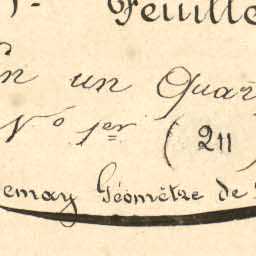 Feuille
En un Quar
N° 1er (211)
emay Géomètre de